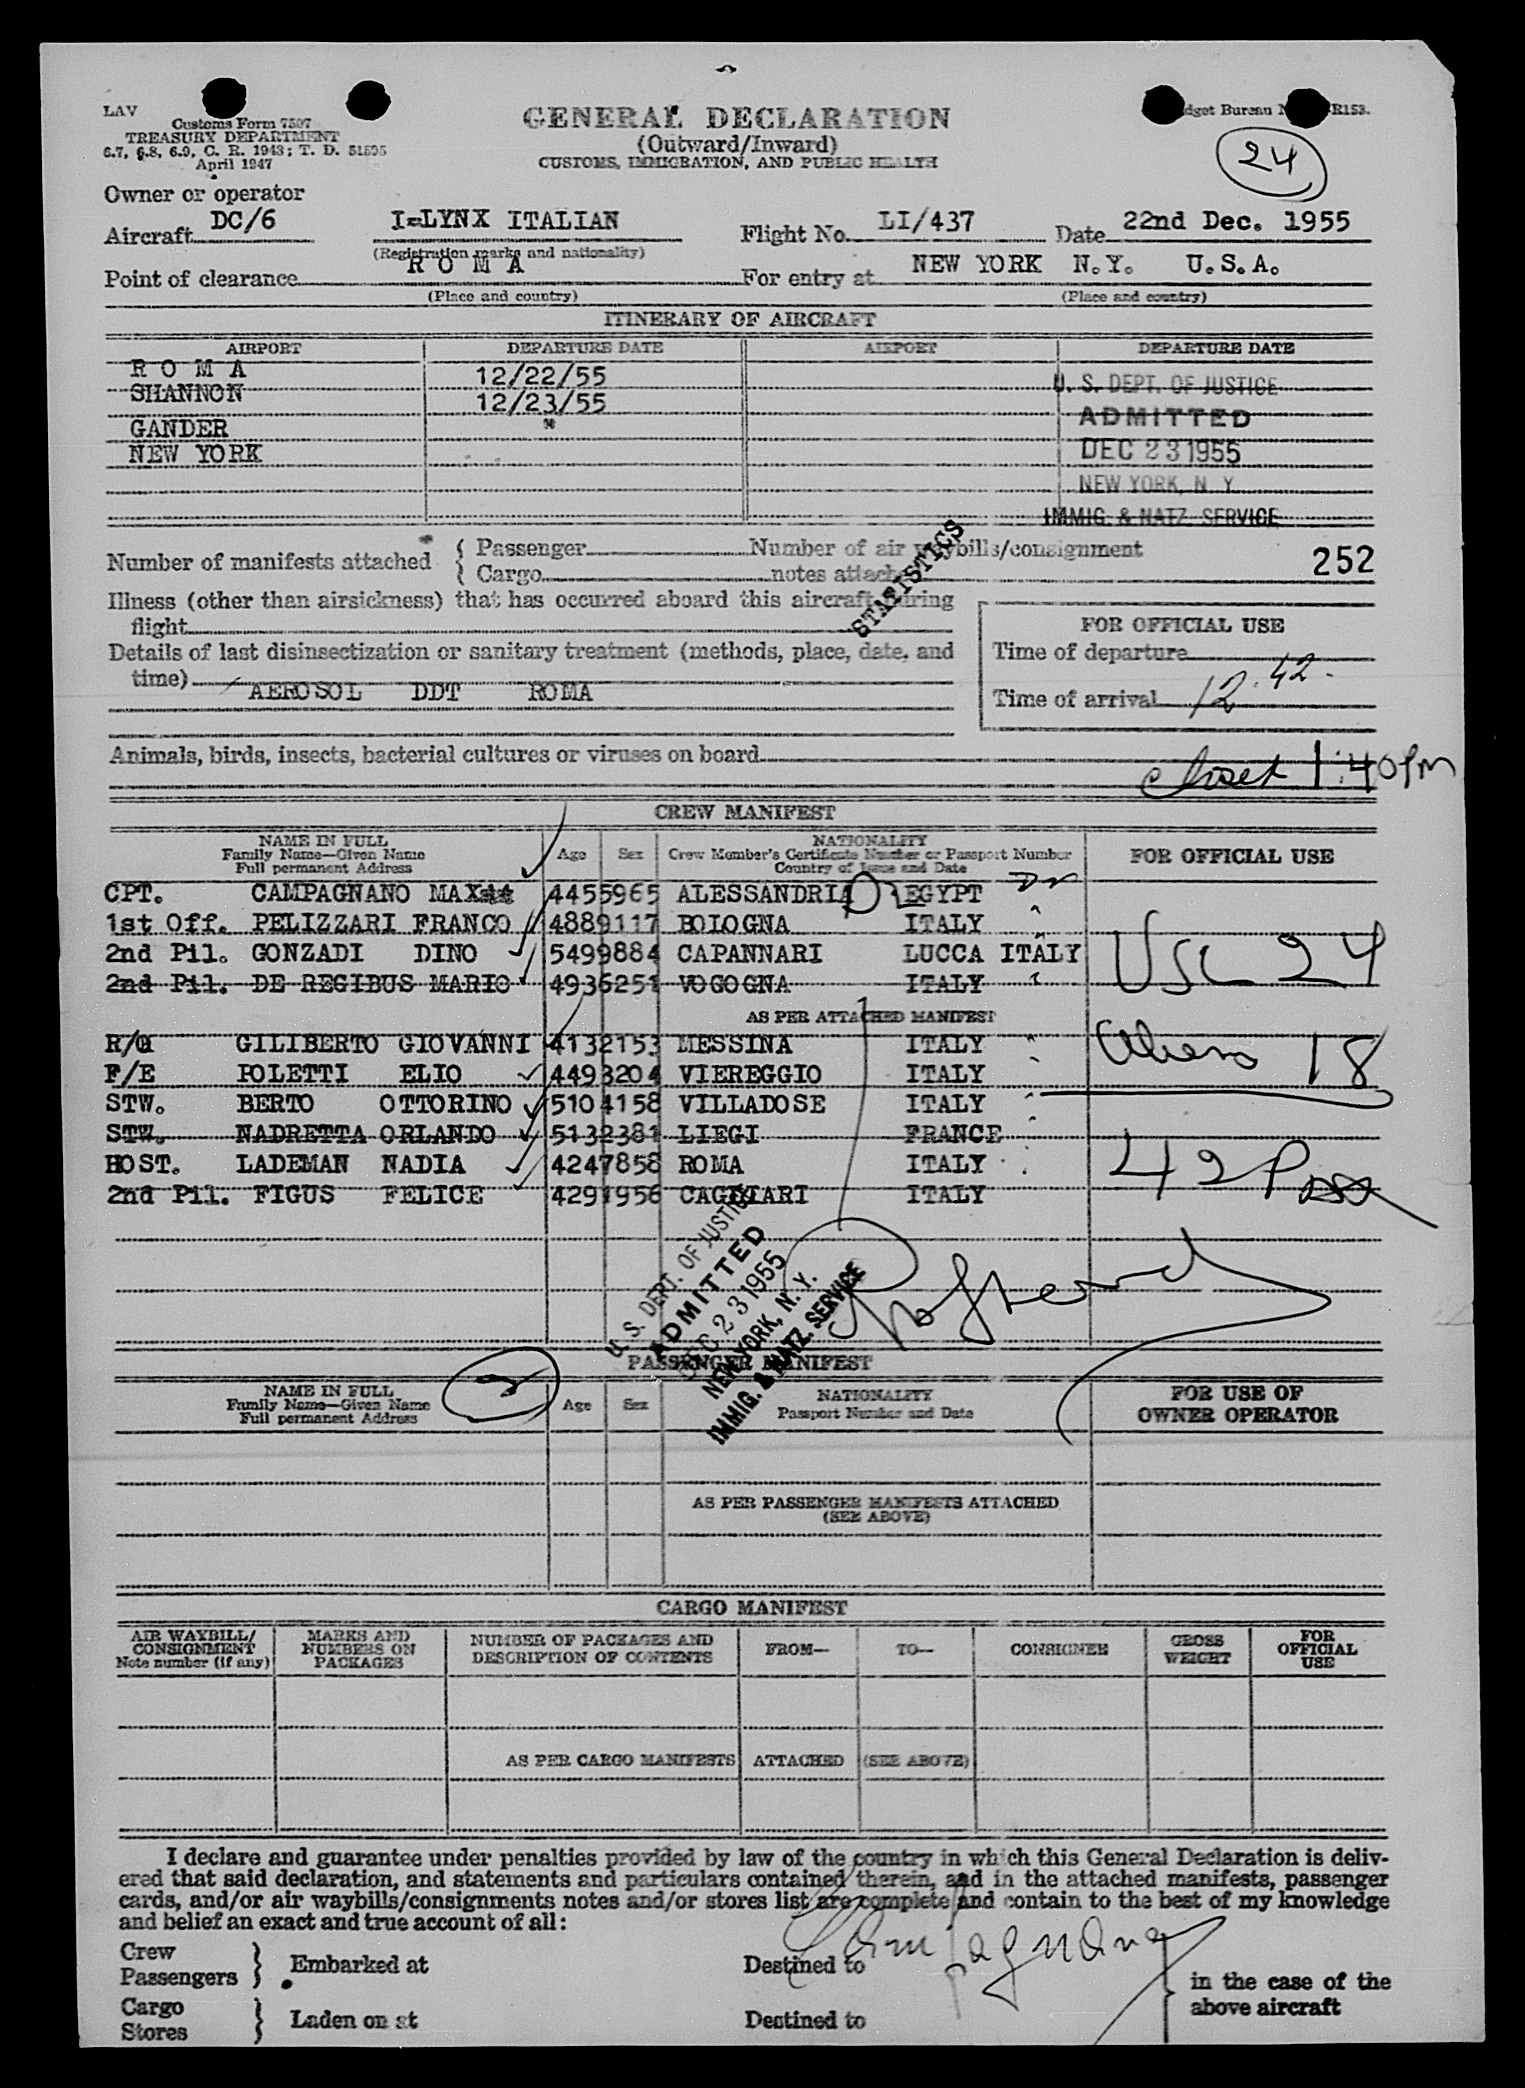 LAV
Customs Form 7507
TREASURY DEPARTMENT
6.7, 6.8, 6.9, C. R. 1943; T. D. 51595
April 1947
GENERAL DECLARATION
(Outward/Inward)
CUSTOMS, IMMIGRATION, AND PUBLIC HEALTH
Budget Bureau R153.
24
Owner or operator
Aircraft DC/6 I-LYNX ITALIAN Flight No. LI/437 Date 22nd Dec. 1955
(Registration marks and nationality)
Point of clearance R O M A For entry at NEW YORK N.Y. U.S.A.
(Place and country) (Place and country)
ITINERARY OF AIRCRAFT
AIRPORT DEPARTURE DATE AIRPORT DEPARTURE DATE
R O M A 12/22/55
SHANNON 12/23/55
GANDER "
NEW YORK
U. S. DEPT. OF JUSTICE
ADMITTED
DEC 23 1955
NEW YORK, N. Y.
IMMIG. & NATZ. SERVICE
Number of manifests attached { Passenger Number of air waybills/consignment
{ Cargo notes attached
252
STATISTICS
Illness (other than airsickness) that has occurred aboard this aircraft during
flight
Details of last disinsectization or sanitary treatment (methods, place, date, and
time) AEROSOL DDT ROMA
FOR OFFICIAL USE
Time of departure
Time of arrival 12.42.
Animals, birds, insects, bacterial cultures or viruses on board
closed 1:40 PM
CREW MANIFEST
NAME IN FULL
Family Name—Given Name
Full permanent Address
Age Sex
NATIONALITY
Crew Member's Certificate Number or Passport Number
Country of Issue and Date
FOR OFFICIAL USE
CPT. CAMPAGNANO MAX 4455965 ALESSANDRIA D EGYPT
1st Off. PELIZZARI FRANCO 4889117 BOLOGNA ITALY
2nd Pil. GONZADI DINO 5499884 CAPANNARI LUCCA ITALY
2nd Pil. DE REGIBUS MARIO 4936251 VOGOGNA ITALY
AS PER ATTACHED MANIFEST
R/O GILIBERTO GIOVANNI 4132153 MESSINA ITALY
F/E POLETTI ELIO 4493204 VIEREGGIO ITALY
STW. BERTO OTTORINO 5104158 VILLADOSE ITALY
STW. NADRETTA ORLANDO 5132381 LIEGI FRANCE
HOST. LADEMAN NADIA 4247858 ROMA ITALY
2nd Pil. FIGUS FELICE 4291956 CAGLIARI ITALY
USC 24
Aliens 18
42 Pass
U. S. DEPT. OF JUSTICE
ADMITTED
DEC 23 1955
NEW YORK, N. Y.
IMMIG. & NATZ. SERVICE
PASSENGER MANIFEST
NAME IN FULL
Family Name—Given Name
Full permanent Address
2
Age Sex
NATIONALITY
Passport Number and Date
FOR USE OF
OWNER OPERATOR
AS PER PASSENGER MANIFESTS ATTACHED
(SEE ABOVE)
CARGO MANIFEST
AIR WAYBILL/
CONSIGNMENT
Note number (if any)
MARKS AND
NUMBERS ON
PACKAGES
NUMBER OF PACKAGES AND
DESCRIPTION OF CONTENTS
FROM— TO— CONSIGNEE
GROSS
WEIGHT
FOR
OFFICIAL
USE
AS PER CARGO MANIFESTS ATTACHED (SEE ABOVE)
I declare and guarantee under penalties provided by law of the country in which this General Declaration is deliv-
ered that said declaration, and statements and particulars contained therein, and in the attached manifests, passenger
cards, and/or air waybills/consignments notes and/or stores list are complete and contain to the best of my knowledge
and belief an exact and true account of all:
Campagnano
Crew
Passengers } Embarked at Destined to
Cargo
Stores } Laden on at Destined to
} in the case of the
above aircraft